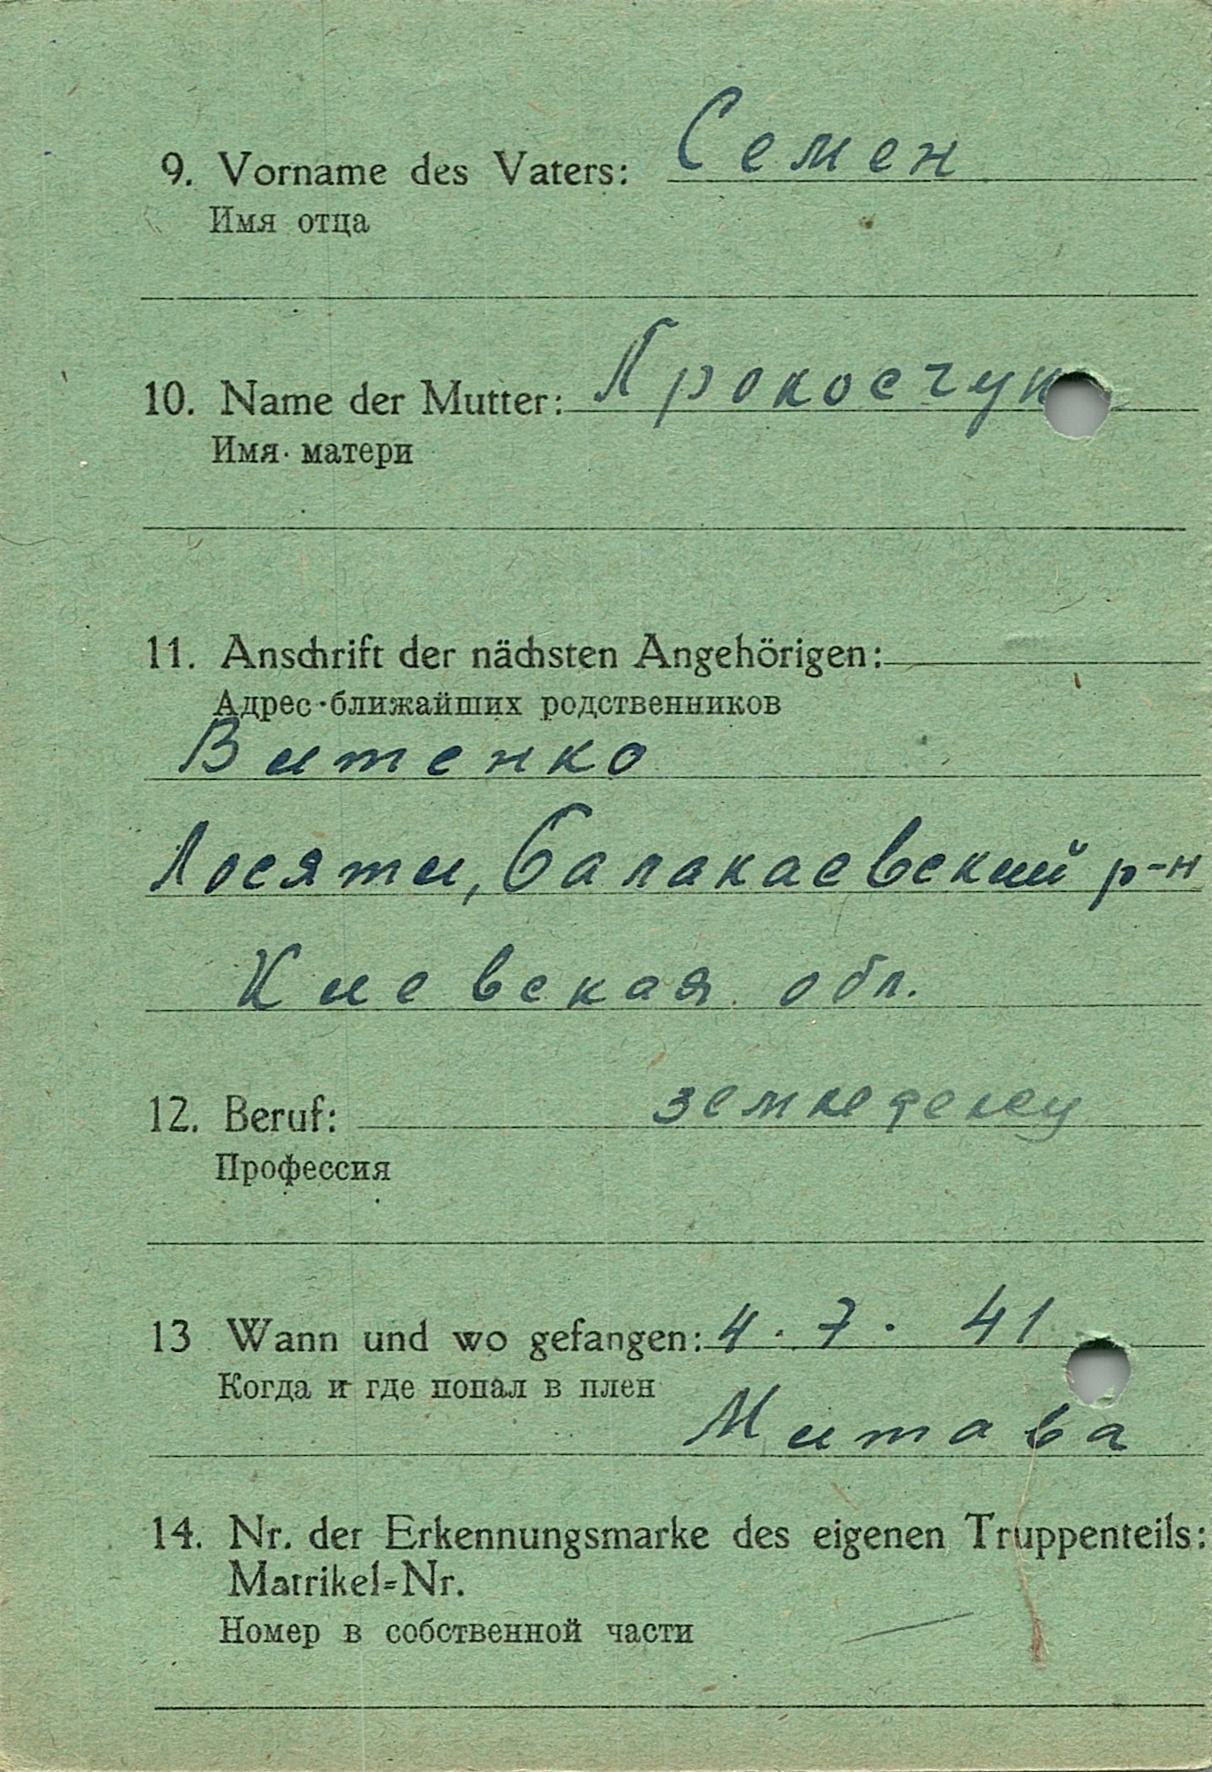 9. Vorname des Vaters: Семен
Имя отца
10. Name der Mutter: Прокосчук
Имя матери
11. Anschrift der nächsten Angehörigen:
Адрес ближайших родственников
Витенко
Лосяти, Балакаевский р-н
Киевская обл.
12. Beruf:
Профессия
13 Wann und wo gefangen: 4. 7. 41
Когда и где попал в плен
Митава
14. Nr. der Erkennungsmarke des eigenen Truppenteils:
Matrikel=Nr.
Номер в собственной части